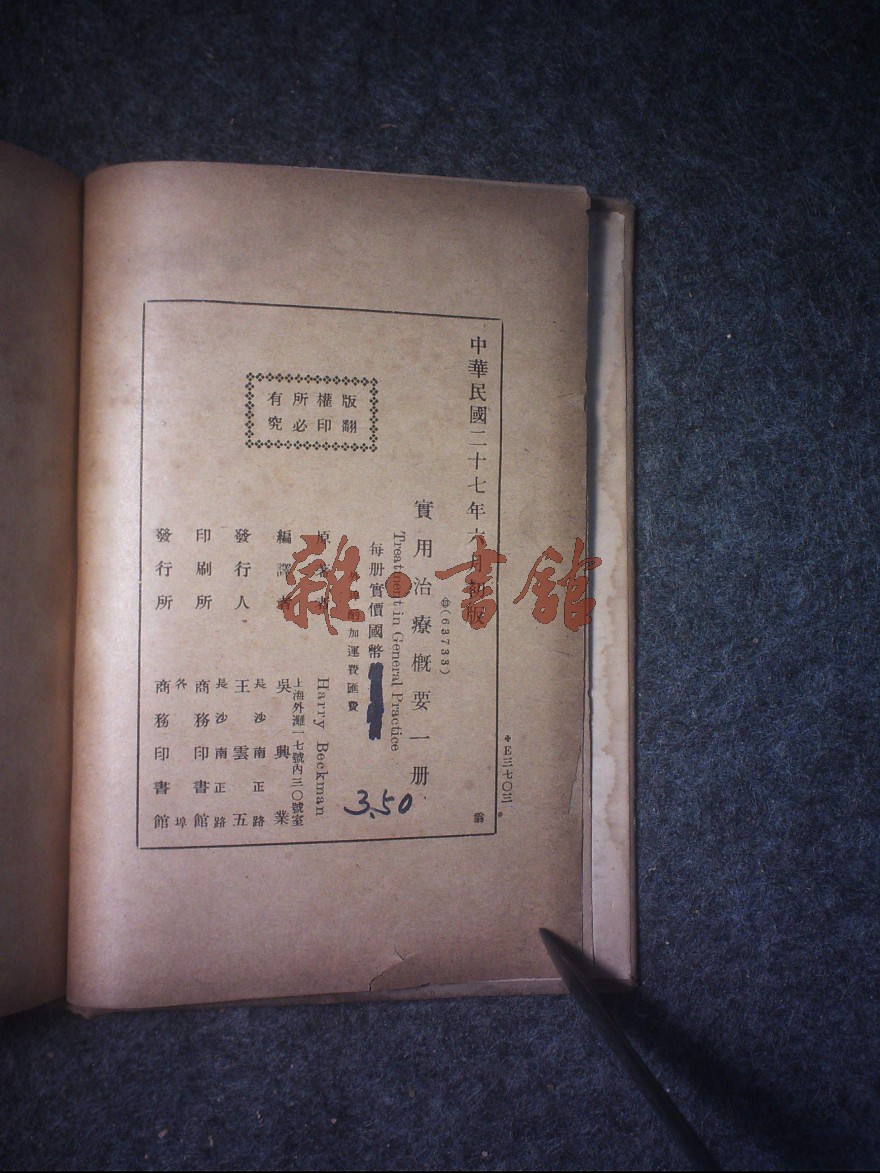 中華民國二十七年六月初版
㊥(63733)
實用治療概要一册
Treatment in General Practice
每册實價國幣
加運費匯費
3.50
原著者 Harry Beckman
編譯者 吳興業
上海外灘一七號內三〇號室
發行人 王雲五
長沙南正路
印刷所 商務印書館
長沙南正路
發行所 商務印書館
各埠
版權所有
翻印必究
E三七〇三
雜·書館